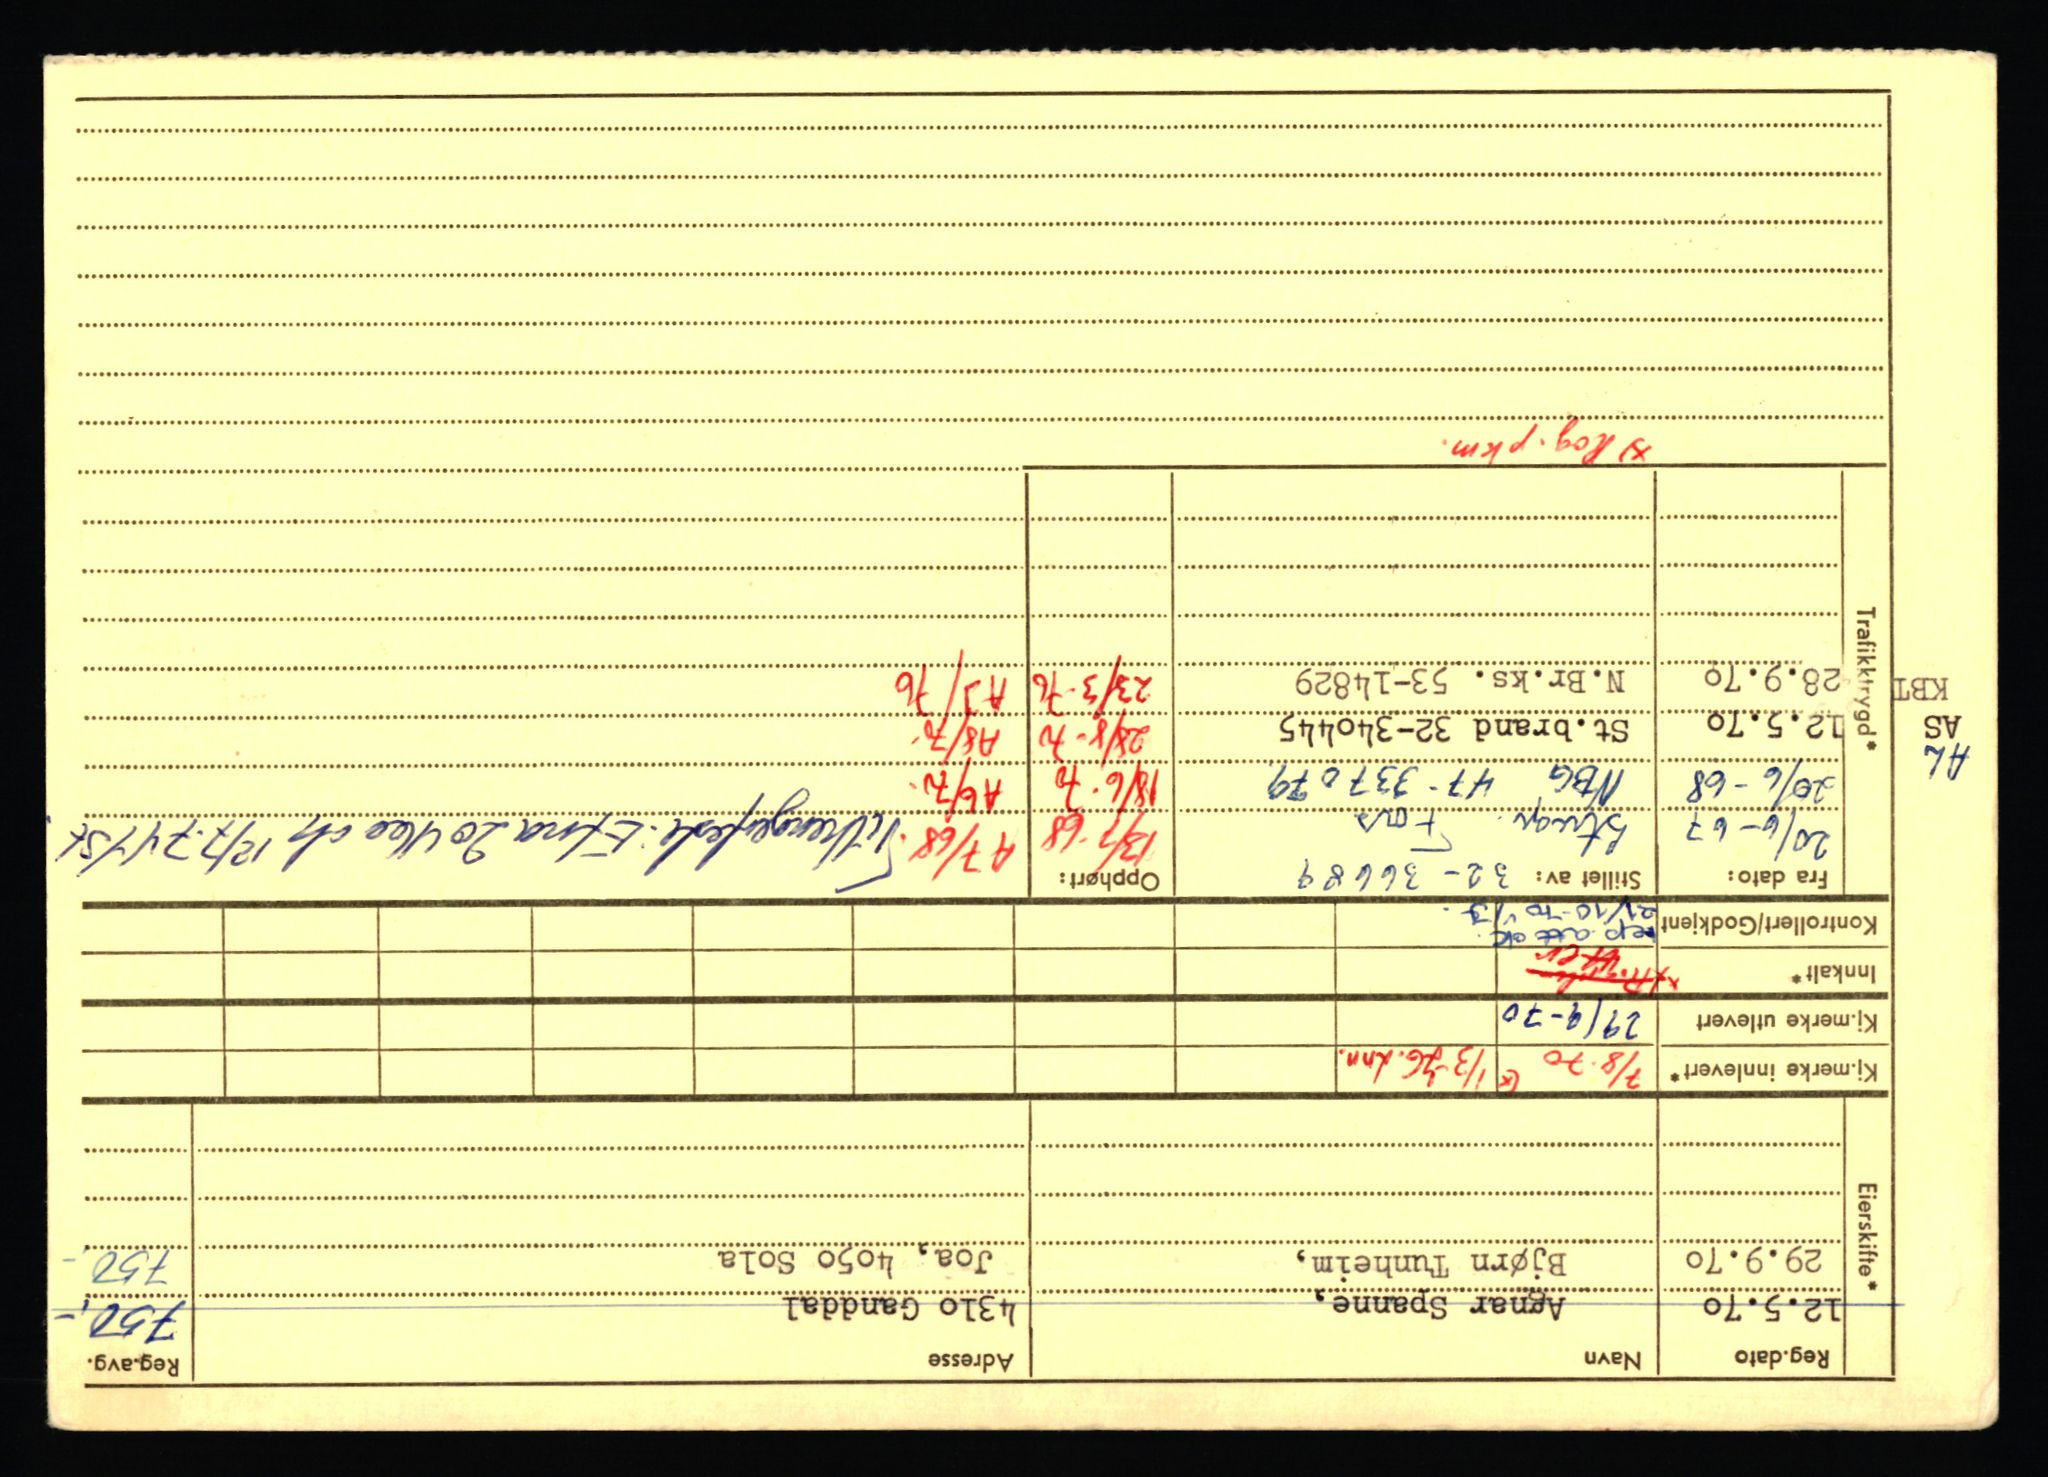 Eierskifte*
Reg.dato Navn Adresse Reg.avg.
12.5.70 Agnar Spanne, 4310 Ganddal 750,-
29.9.70 Bjørn Tunheim, Joa, 4050 Sola 750,-
Kj.merke innlevert* 7/8-70 x) 1/3-76.
Kj.merke utlevert 29/9-70
Innkalt*
Kontrollert/Godkjent rep. att ok.
21/10-70
Trafikktrygd*
Fra dato: Stillet av: 32-36689 Opphørt:
20/6-67 13/7-68 A7/68.
20/6-68 NBG 47-337079 18/6-70 A6/70.
AL
12.5.70 St.brand 32-340445 28/8-70 A8/70.
AS
28.9.70 N.Br.ks. 53-14829 23/3-76 A3/76
KBT
x) Rog. pkm.